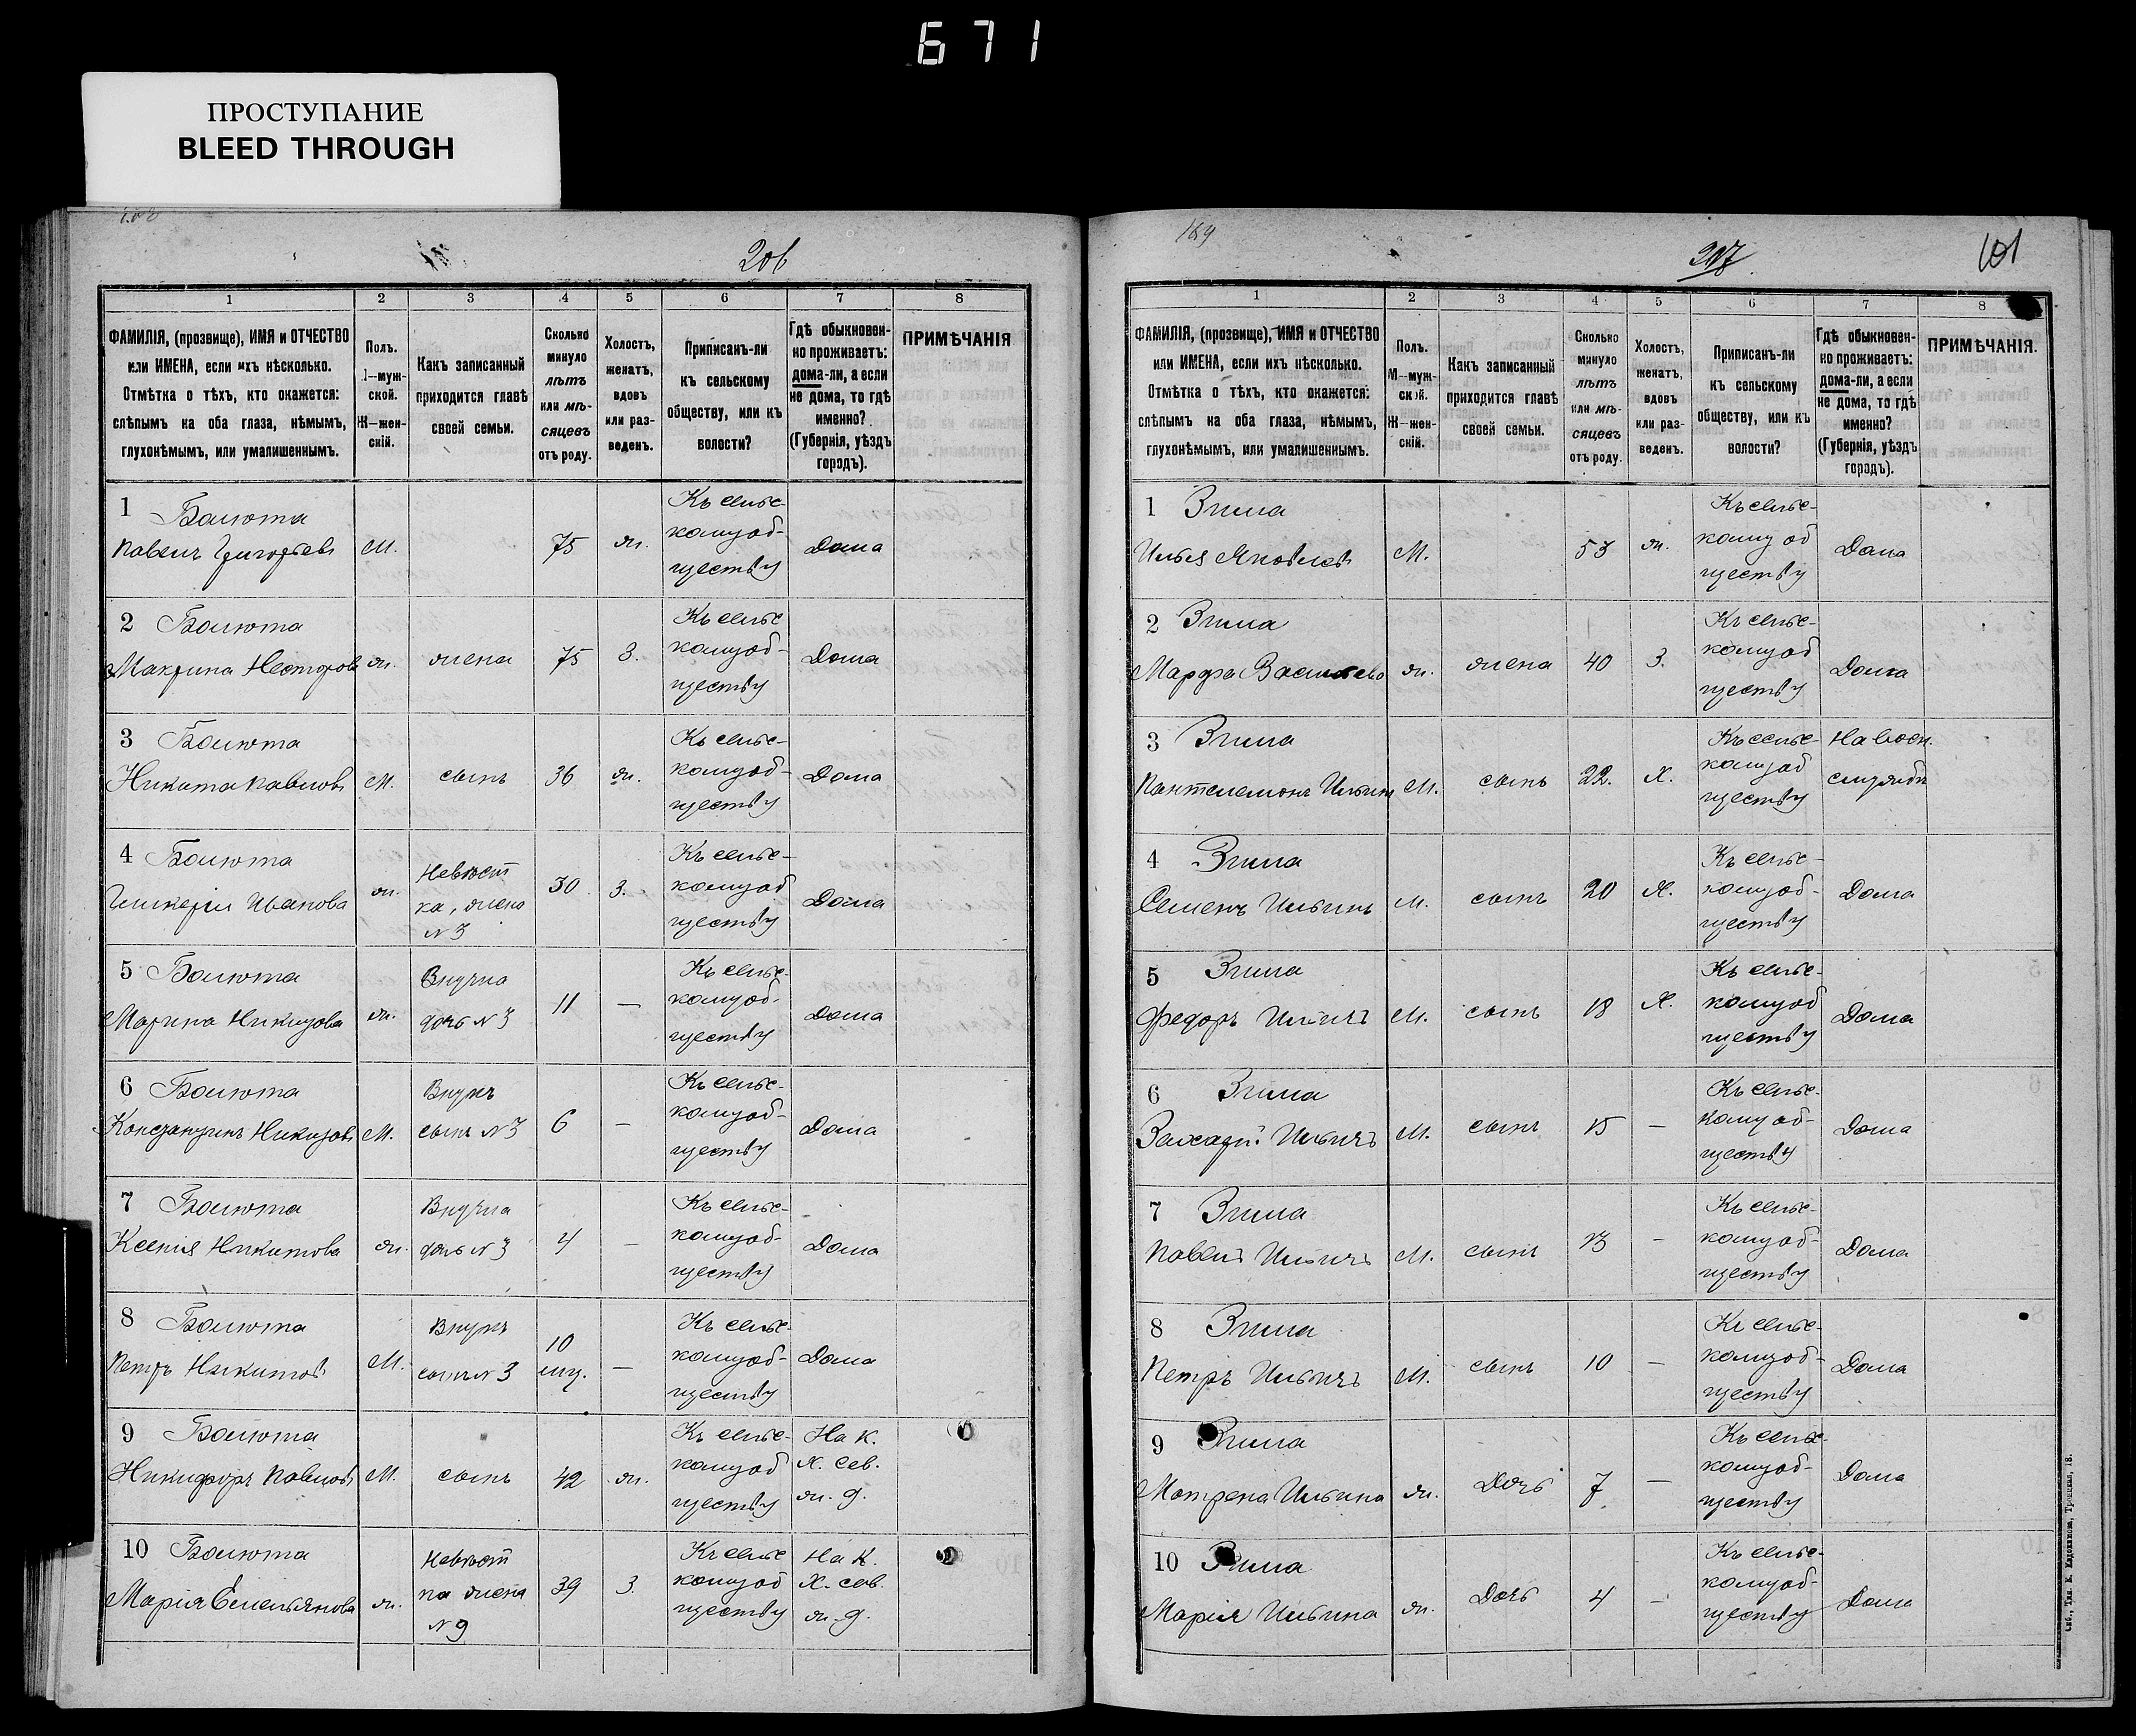 671
ПРОСТУПАНИЕ
BLEED THROUGH
206
1 2 3 4 5 6 7 8
ФАМИЛІЯ, (прозвище), ИМЯ и ОТЧЕСТВО
или ИМЕНА, если ихъ нѣсколько.
Отмѣтка о тѣхъ, кто окажется:
слѣпымъ на оба глаза, нѣмымъ,
глухонѣмымъ, или умалишеннымъ.
Полъ.
—муж-
ской.
Ж—жен-
скій.
Какъ записанный
приходится главѣ
своей семьи.
Сколько
минуло
лѣтъ
или мѣ-
сяцевъ
отъ роду.
Холостъ,
женатъ,
вдовъ
или раз-
веденъ.
Приписанъ-ли
къ сельскому
обществу, или къ
волости?
Гдѣ обыкновен-
но проживаетъ:
дома-ли, а если
не дома, то гдѣ
именно?
(Губернія, уѣздъ
городъ).
ПРИМѢЧАНІЯ
1 Болюта
Павелъ Григорьевъ М. 75 ж. Къ сельс-
кому об-
ществу Дома
2 Болюта
Макрина Несторова ж. жена 75 З. Къ сельс
кому об-
ществу Дома
3 Болюта
Никита Павловъ М. сынъ 36 ж. Къ сельс-
кому об-
ществу Дома
4 Болюта
Гликерія Иванова ж. Невѣст
ка, жена
№ 3 30 З. Къ сельс-
кому об
ществу Дома
5 Болюта
Марина Никитова ж. Внучка
дочь № 3 11 — Къ сельс-
кому об-
ществу Дома
6 Болюта
Константинъ Никитовъ М. Внукъ
сынъ № 3 6 — Къ сельс-
кому об-
ществу Дома
7 Болюта
Ксенія Никитова ж. Внучка
дочь № 3 4 — Къ сельс-
кому об-
ществу Дома
8 Болюта
Петръ Никитовъ М. Внукъ
сынъ № 3 10
мц. — Къ сельс-
кому об-
ществу Дома
9 Болюта
Никифоръ Павловъ М. сынъ 42 ж. Къ сельс-
кому об
ществу На К.
Х. сев.
ж. д.
10 Болюта
Марія Емельянова ж. Невѣст
ка жена
№ 9 39 З. Къ сельс
кому об
ществу На К.
Х. сев.
ж. д.
207
101
1 2 3 4 5 6 7 8
ФАМИЛІЯ, (прозвище), ИМЯ и ОТЧЕСТВО
или ИМЕНА, если ихъ нѣсколько.
Отмѣтка о тѣхъ, кто окажется:
слѣпымъ на оба глаза, нѣмымъ,
глухонѣмымъ, или умалишеннымъ.
Полъ.
М—муж-
ской.
Ж—жен-
скій.
Какъ записанный
приходится главѣ
своей семьи.
Сколько
минуло
лѣтъ
или мѣ-
сяцевъ
отъ роду.
Холостъ,
женатъ,
вдовъ
или раз-
веденъ.
Приписанъ-ли
къ сельскому
обществу, или къ
волости?
Гдѣ обыкновен-
но проживаетъ:
дома-ли, а если
не дома, то гдѣ
именно?
(Губернія, уѣздъ
городъ).
ПРИМѢЧАНІЯ.
1 Зима
Илья Яковлевъ М. 53 ж. Къ сельс-
кому об
ществу Дома
2 Зима
Марфа Васильева ж. жена 40 З. Къ сельс-
кому об
ществу Дома
3 Зима
Пантелемонъ Ильичъ М. сынъ 22. Х. Къ сельс-
кому об
ществу На воен.
службѣ
4 Зима
Семенъ Ильинъ М. сынъ 20 Х. Къ сельс-
кому об-
ществу Дома
5 Зима
Федоръ Ильичъ М. сынъ 18 Х. Къ сельс-
кому об
ществу Дома
6 Зима
Ильичъ М. сынъ 15 — Къ сельс-
кому об-
ществу Дома
7 Зима
Павелъ Ильичъ М. сынъ 13 — Къ сельс-
кому об-
ществу Дома
8 Зима
Петръ Ильичъ М. сынъ 10 — Къ сельс-
кому об-
ществу Дома
9 Зима
Мотрена Ильина ж. Дочь 7 — Къ сельс-
кому об-
ществу Дома
10 Зима
Марія Ильина ж. Дочь 4 — Къ сельс-
кому об-
ществу Дома